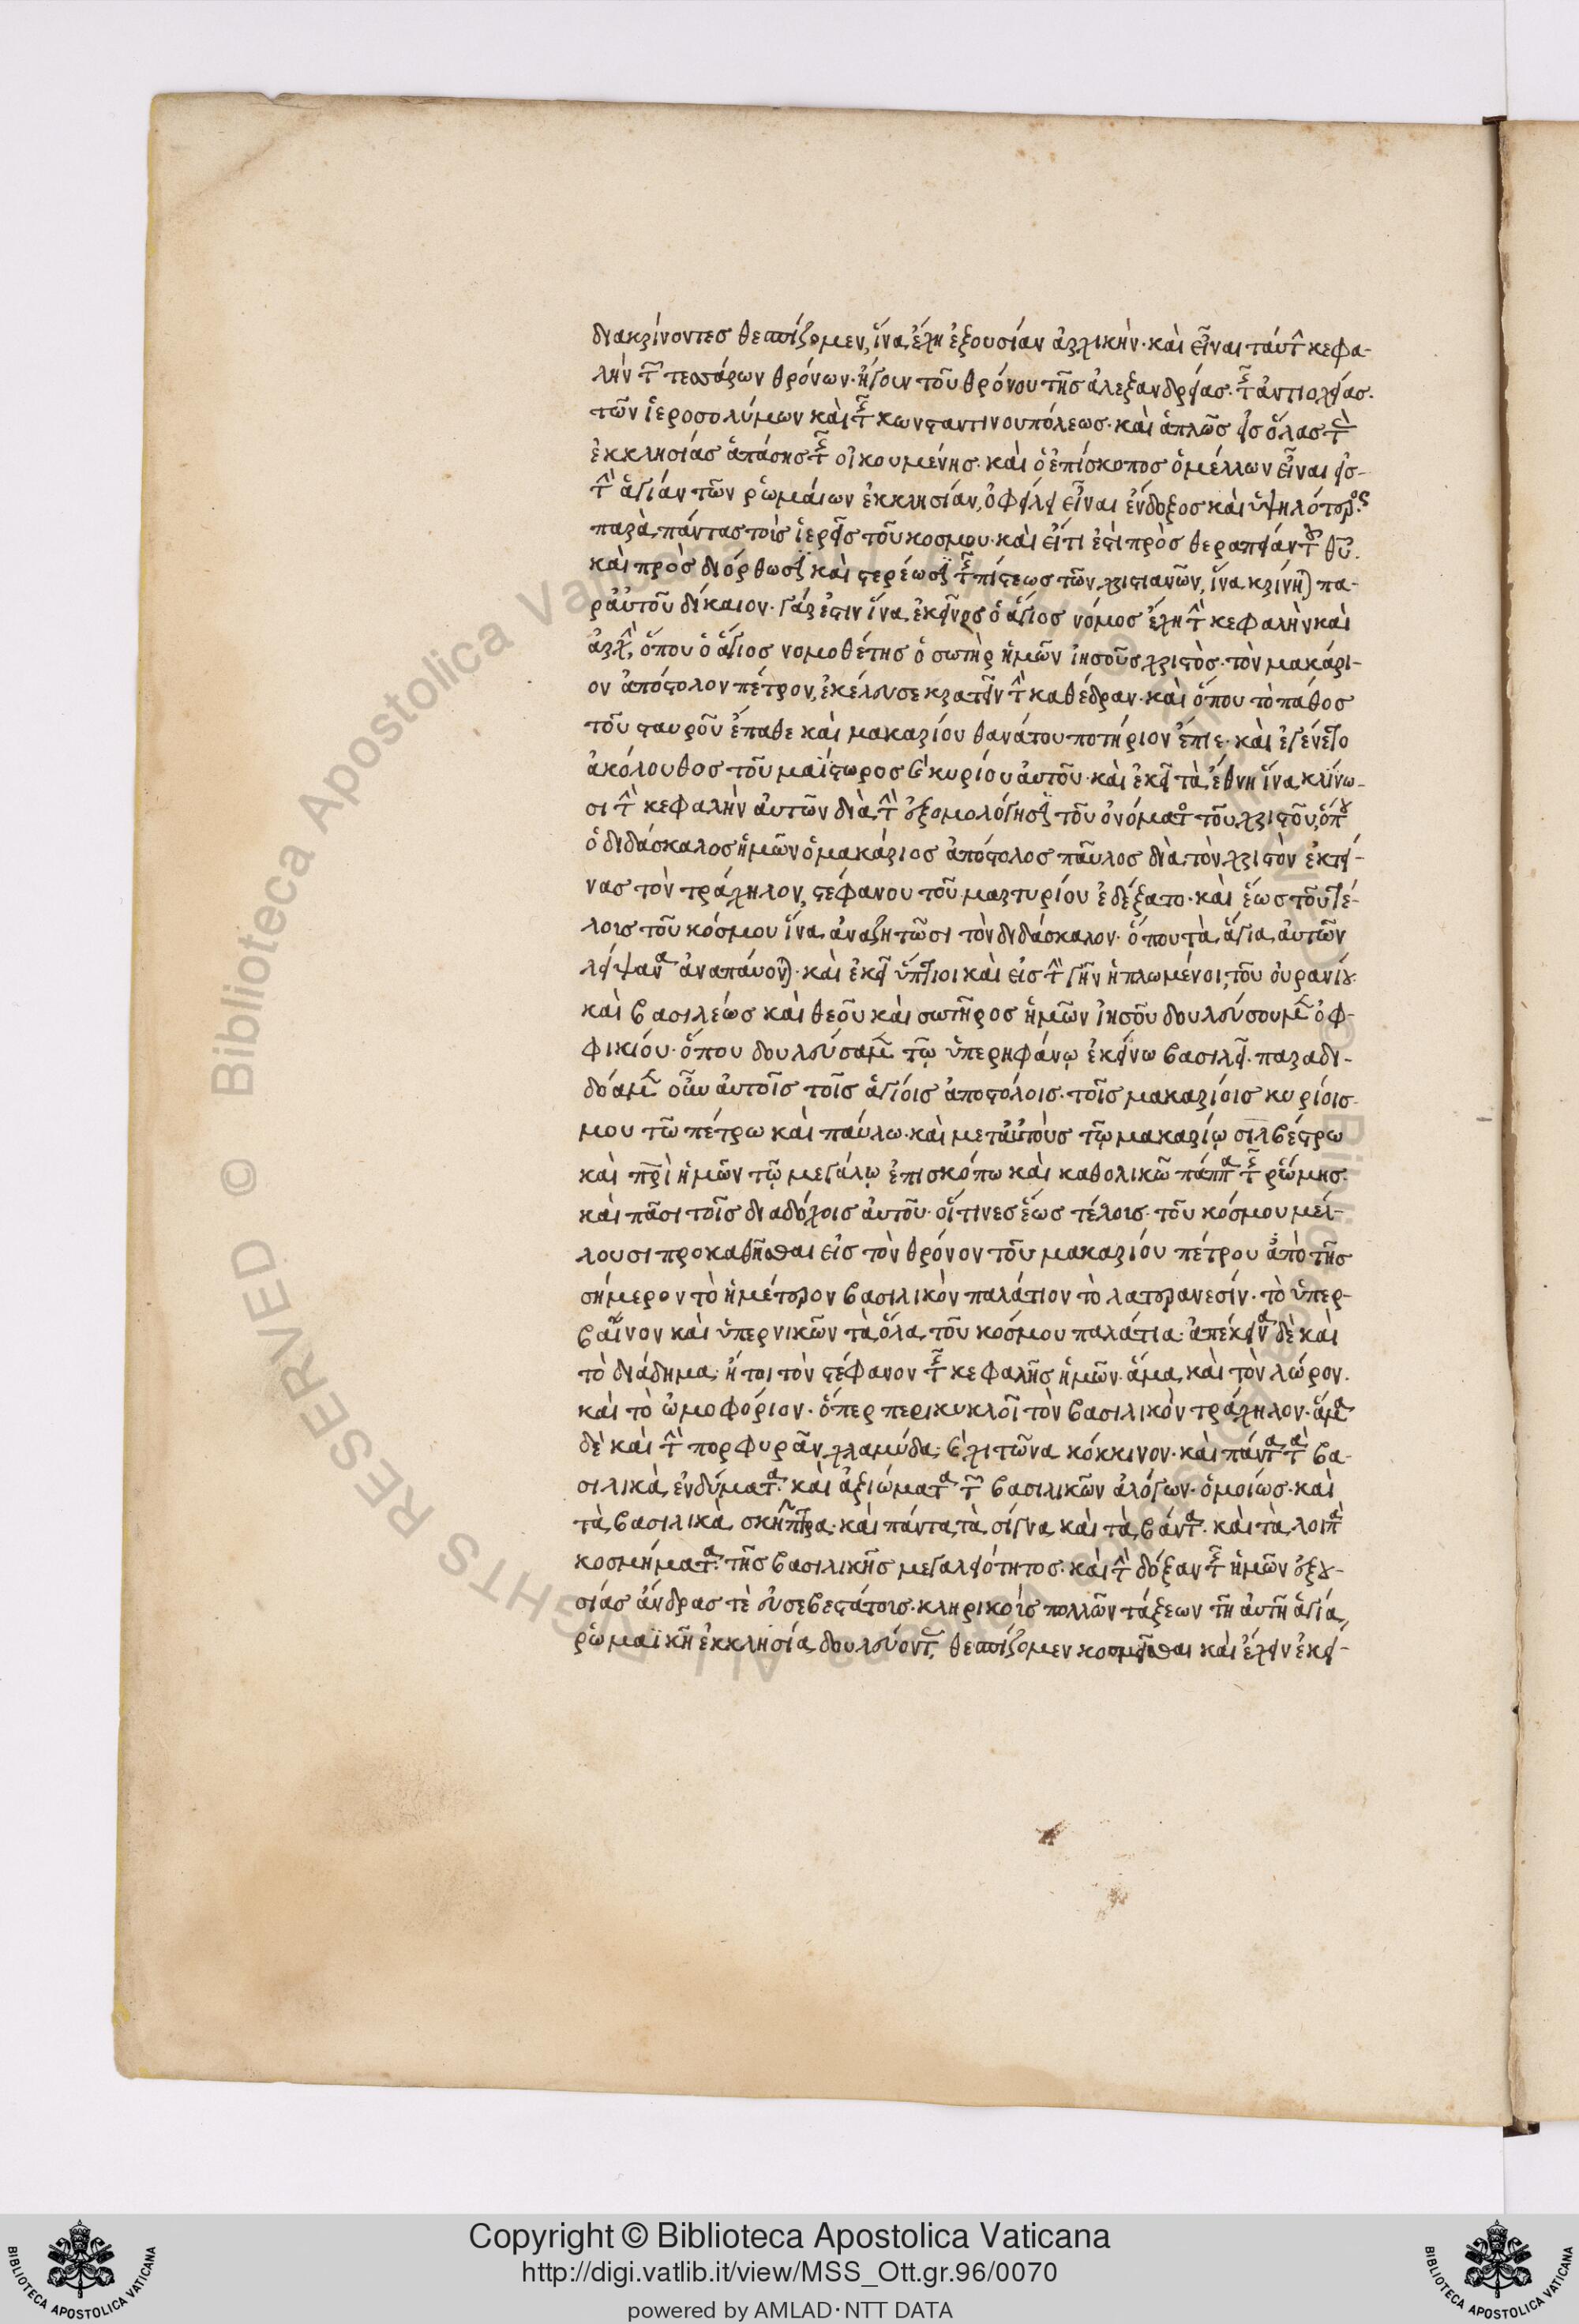 διακρίνοντες θεσπίζομεν, ἵνα ἔχη ἐξουσίαν ἀρχικὴν· καὶ εἶναι ταύτ κεφα-
λὴν τ τεσσάρων θρόνων· ἤγουν τοῦ θρόνου τῆς ἀλεξανδρείας· τ ἀντιοχείας·
τῶν ἱεροσολύμων καὶ τ κωνσταντινουπόλεως· καὶ ἁπλῶς εἰς ὅλας τ
ἐκκλησίας ἁπάσης τ οἰκουμένης· καὶ ὁ ἐπίσκοπος ὁ μέλλων εἶναι εἰς
τ ἁγίαν τῶν ῥωμαίων ἐκκλησίαν, ὀφείλει εἶναι ἔνδοξος καὶ ὑψηλότερος
παρὰ πάντας τοὺς ἱερεῖς τοῦ κόσμου· καὶ εἴτι ἐστὶ πρὸς θεραπείαν τ θῦ·
καὶ πρὸς διόρθωσϊ καὶ στερέωσϊ τ πίστεως τῶν χριστιανῶν, ἵνα κρίνη) πα-
ρ' αὐτοῦ δίκαιον· γάρ ἐστιν ἵνα ἐκεῖνος ὁ ἅγιος νόμος ἔχη τ κεφαλὴν καὶ
ἀρχ, ὅπου ὁ ἅγιος νομοθέτης ὁ σωτὴρ ἡμῶν ἰησοῦς χριστὸς· τὸν μακάρι-
ον ἀπόστολον πέτρον, ἐκέλευσε κρατεῖν τ καθέδραν· καὶ ὅπου τὸ πάθος
τοῦ σταυροῦ ἔπαθε καὶ μακαρίου θανάτου ποτήριον ἔπιε· καὶ ἐγένετο
ἀκόλουθος τοῦ μαΐστωρος κυρίου αὐτοῦ· καὶ ἐκεῖ τὰ ἔθνη ἵνα κλίνω-
σι τ κεφαλὴν αὐτῶν διὰ τ ἐξομολόγησϊ τοῦ ὀνόματ τοῦ χριστοῦ, ὅπου
ὁ διδάσκαλος ἡμῶν ὁ μακάριος ἀπόστολος παῦλος διὰ τὸν χριστὸν ἐκτεί-
νας τὸν τράχηλον, στέφανου τοῦ μαρτυρίου ἐδέξατο· καὶ ἕως τοῦ τέ-
λους τοῦ κόσμου ἵνα ἀναζητῶσι τὸν διδάσκαλον· ὅπου τὰ ἅγια αὐτῶν
λείψανα ἀναπαύον)· καὶ ἐκεῖ ὕπτιοι καὶ εἰς τ γῆν ἡπλωμένοι, τοῦ οὐρανίου
καὶ βασιλέως καὶ θεοῦ καὶ σωτῆρος ἡμῶν ἰησοῦ δουλεύσουμ ὀφ-
φικίου· ὅπου δουλεύσαμ τῷ ὑπερηφάνῳ ἐκείνω βασιλεῖ· παραδι-
δόαμ οὖν αὐτοῖς τοῖς ἁγίοις ἀποστόλοις· τοῖς μακαρίοις κυρίοις
μου τῶ πέτρω καὶ παύλω· καὶ μετ' αὐτοὺς τῷ μακαρίῳ σιλβέστρω
καὶ πρὶ ἡμῶν τῷ μεγάλῳ ἐπισκόπω καὶ καθολικῶ πάππα τ ῥώμης·
καὶ πᾶσι τοῖς διαδόχοις αὐτοῦ· οἵτινες ἕως τέλους· τοῦ κόσμου μέλ-
λουσι προκαθῆσθαι εἰς τὸν θρόνον τοῦ μακαρίου πέτρου ἀπὸ τῆς
σήμερον τὸ ἡμέτερον βασιλικὸν παλάτιον τὸ λατερανεσίν· τὸ ὑπερ-
βαῖνον καὶ ὑπερνικῶν τὰ ὅλα τοῦ κόσμου παλάτια· ἀπέκεινα δὲ καὶ
τὸ διάδημα· ἤτοι τὸν στέφανον τ κεφαλῆς ἡμῶν· ἅμα καὶ τὸν λῶρον·
καὶ τὸ ὠμοφόριον· ὅπερ περικυκλοῖ τὸν βασιλικὸν τράχηλον· ἅμα
δὲ καὶ τ πορφυρᾶν χλαμύδα· χιτῶνα κόκκινον· καὶ πάντα τὰ βα-
σιλικὰ ἐνδύματα· καὶ ἀξιώματα τ βασιλικῶν ἀλόγων· ὁμοίως· καὶ
τὰ βασιλικὰ σκῆπτρα· καὶ πάντα τὰ σίγνα καὶ τὰ βάντα· καὶ τὰ λοιπὰ
κοσμήματα· τῆς βασιλικῆς μεγαλειότητος· καὶ τ δόξαν τ ἡμῶν ἐξου-
σίας ἄνδρας τὲ εὐσεβεστάτοις· κληρικοὺς πολλῶν τάξεων τῆ αὐτῆ ἁγία
ῥωμαϊκῆ ἐκκλησία δουλεύοντ, θεσπίζομεν κοσμεῖσθαι καὶ ἔχειν ἐκεί-
Copyright © Biblioteca Apostolica Vaticana
http://digi.vatlib.it/view/MSS_Ott.gr.96/0070
powered by AMLAD·NTT DATA